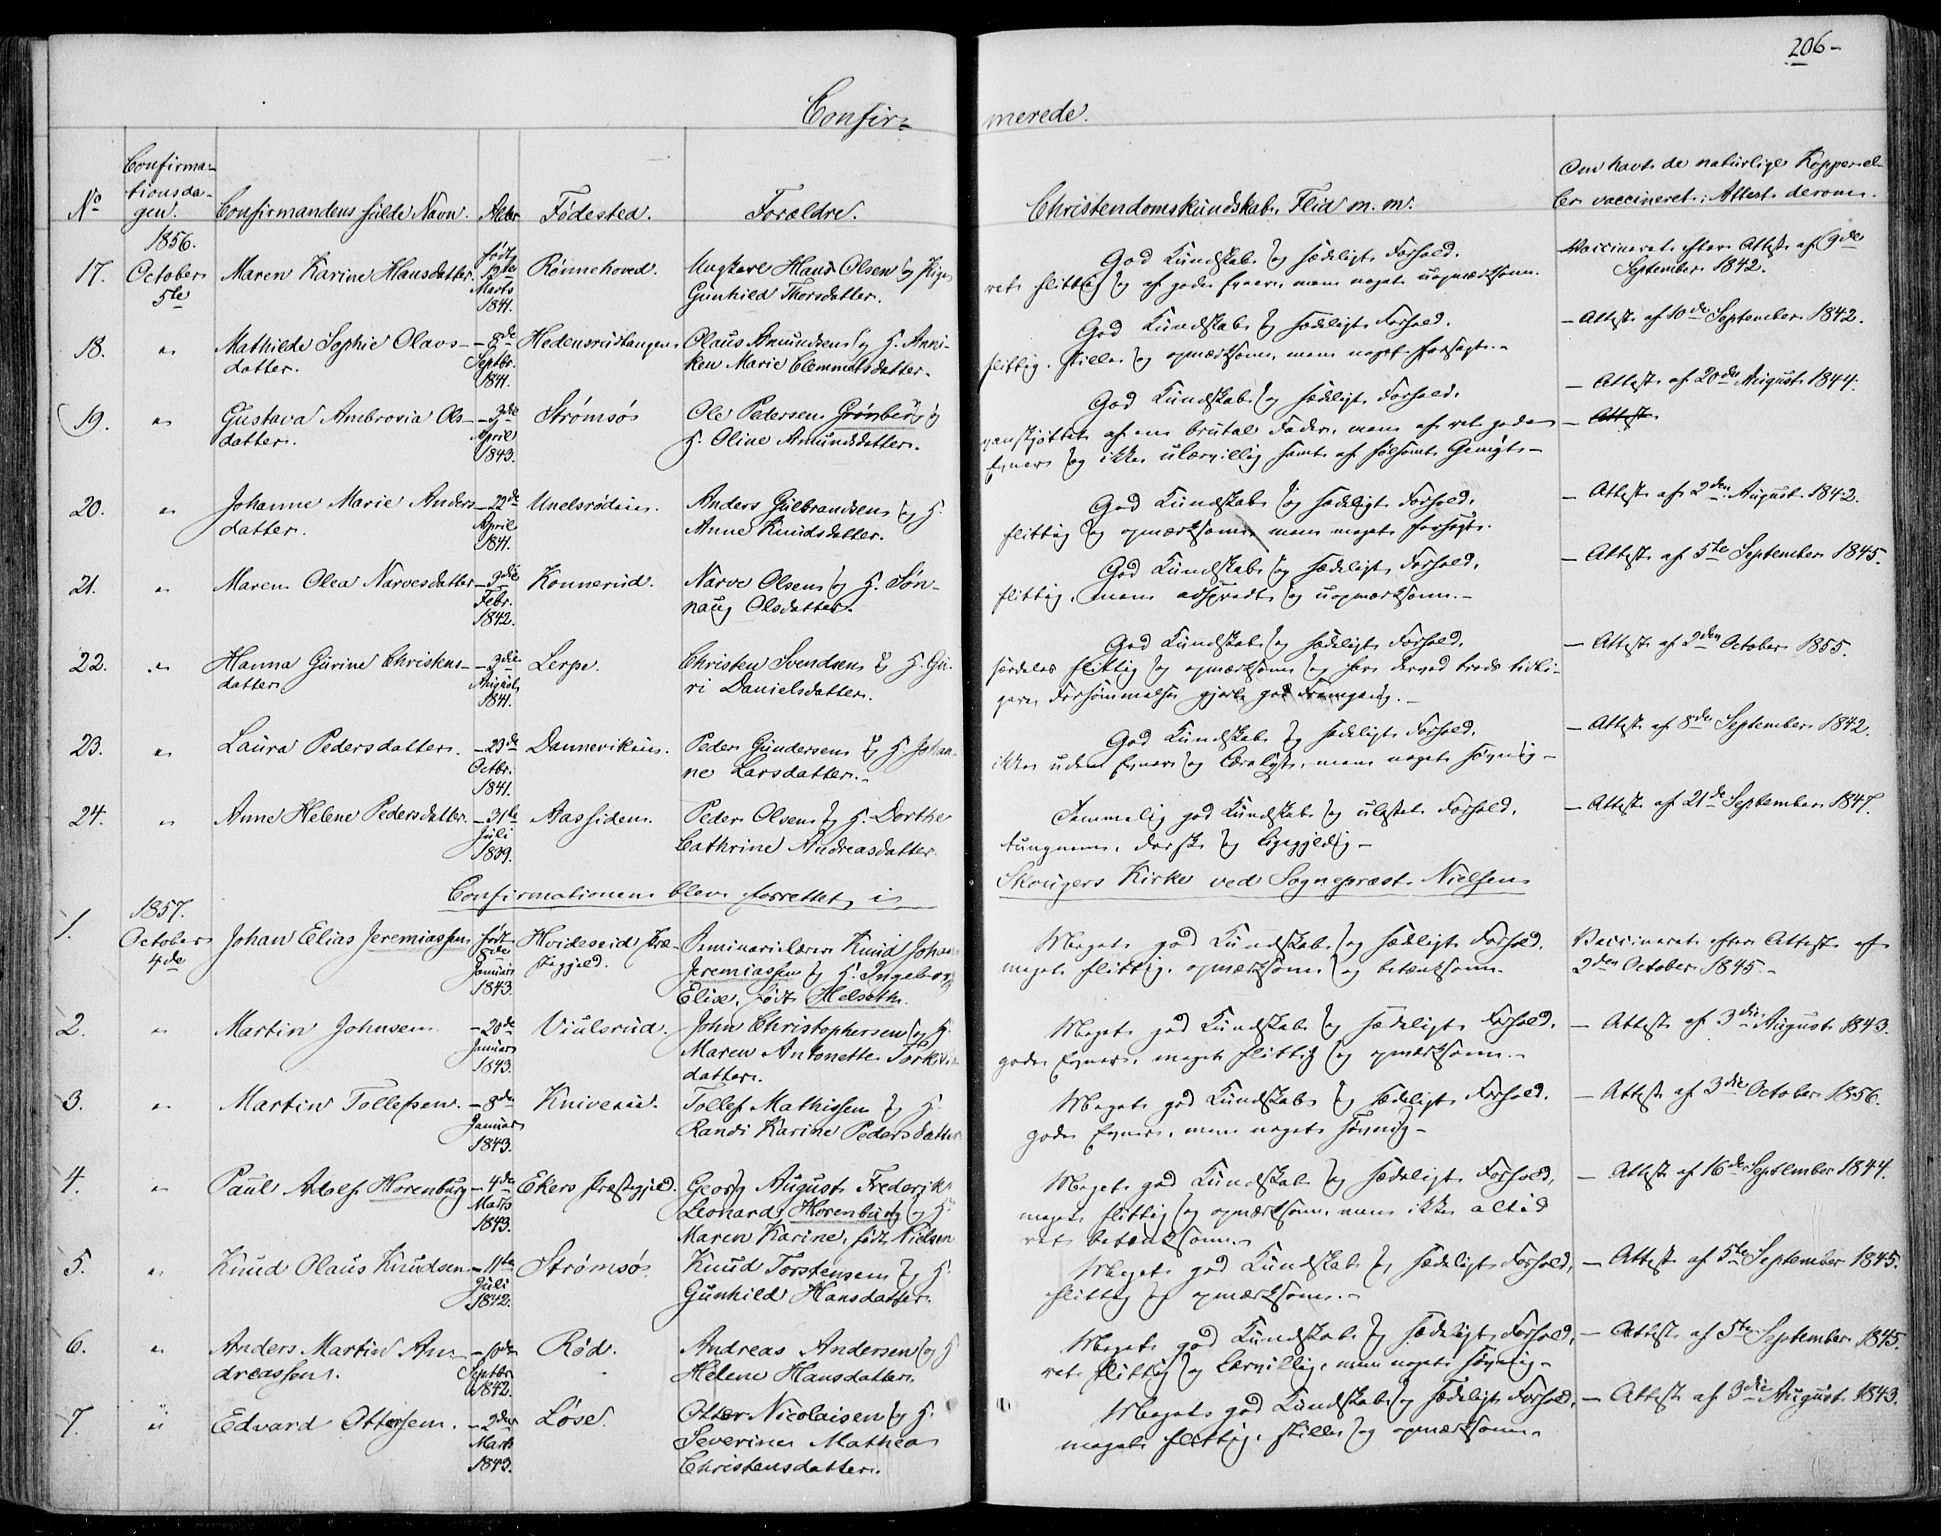 206-
Confir-
merede.
No
Confirma-
tionsda-
gen.
Confirmandens fulde Navn.
Alder
Fødested.
Forældre.
Christendomskundskab, Flid m. m.
Om havt de naturlige Kopper el-
ler vaccineret; Attest derom.
1856.
17.
October
5te
Maren Karine Hansdatter.
født
19de
Marts
1841.
Rønnehoved.
Ungkarl Hans Olsen og Pige
Gunhild Thorsdatter.
God Kundskab og sædeligt Forhold.
ret flittig og af gode Evner, men noget uopmærksom.
Vaccineret efter Attest af 9de
September 1842.
18.
"
Mathilde Sophie Olaus-
datter.
- 8de
Septbr.
1841.
Hedensrudtangen
Olaus Amundsen og H. Anni-
ken Marie Clemmetsdatter.
God Kundskab og sædeligt Forhold.
flittig, stille og opmærksom, men noget forsagt.-
- Attest af 10de September 1842.
19.
"
Gustava Ambrosia Ols-
datter.
- 3die
April
1843.
Strømsø
Ole Pedersen Grønberg og
H. Oline Amundsdatter.
God Kundskab og sædeligt Forhold.
vanskjøttet af en brutal Fader, men af ret gode
Evner og ikke ulærvillig samt af følsomt Gemyt.-
- Attest af 20de August 1844.
- Attest
20.
"
Johanne Marie Anders-
datter.
- 22de
April
1841.
Unelsrødin.
Anders Gulbrandsen og H.
Anne Knudsdatter.
God Kundskab og sædeligt Forhold.
flittig og opmærksom, men meget forsagt.
- Attest af 2den August 1842.
21.
"
Maren Olea Narvesdatter
- 3die
Febr.
1842.
Konnerud.
Narve Olsen og H. Søn-
naug Olsdatter.
God Kundskab og sædeligt Forhold.
flittig, men adspredt og uopmærksom.-
- Attest af 5te September 1845.
22.
"
Hanna Gurine Christens-
datter
- 3die
August
1841.
Lerpe.
Christen Svendsen og H. Gu-
ri Danielsdatter.
God Kundskab og sædeligt Forhold.
særdeles flittig og opmærksom og har derved trods tidli-
gere Forsømmelse gjort god Fremgang.-
- Attest af 2den October 1855.
23.
"
Laura Pedersdatter.
- 23de
Octbr.
1841.
Danneviken.
Peder Gundersen og H. Johan-
ne Larsdatter.-
God Kundskab og sædeligt Forhold.
ikke uden Evner og Lærelyst, men noget søvnig-
- Attest af 8de September 1842.
24.
"
Anne Helene Pedersdatter.
- 31te
Juli
1839.
Aassiden.
Peder Olsen og H. Dorthe
Cathrine Andreasdatter.
Temmelig god Kundskab og ulastet Forhold.
tungnem, dorsk og ligegyldig-
- Attest af 21de September 1847.
Confirmationen blev forrettet i
Skougers Kirke ved Sognepræst Nielsen
1857.
1.
October
4de
Johan Elias Jeremiassen
født
8de
Januar
1843.
Hvideseid Præ-
stegjeld.
Seminarielærer Knud Johan
Jeremiassen og H. Ingeborg
Elise, født Helseth.
Meget god Kundskab og sædeligt Forhold.
meget flittig, opmærksom og betænksom.
Vaccineret efter Attest af
2den October 1845.-
2.
"
Martin Johnsen
- 20de
Januar
1843.
Viulsrud.
John Christophersen og H.
Maren Antonette Torkils-
datter.
Meget god Kundskab og sædeligt Forhold.
gode Evner, meget flittig og opmærksom.-
- Attest af 3die August 1843.
3.
"
Martin Tollefsen.
- 8de
Januar
1843.
Kniverud.
Tollef Mathissen og H.
Randi Karine Pedersdatter
Meget god Kundskab og sædeligt Forhold.
gode Evner, men noget søvnig-
- Attest af 3die October 1856.
4.
"
Paul Adolf Horenburg
- 4de
Marts
1843.
Ekers Præstegjeld.
Georg August Frederik
Leonard Horenburg og H.
Maren Karine, født Nielsen
Meget god Kundskab og sædeligt Forhold,
meget flittig og opmærksom, men ikke altid
ret betænksom.
- Attest af 16de September 1844.
5.
"
Knud Olaus Knudsen
- 11te
Juli
1842.
Strømsø
Knud Torstensen og H.
Gunhild Hansdatter.
Meget god Kundskab og sædeligt Forhold,
flittig og opmærksom.-
- Attest af 5te September 1845.
6.
"
Anders Martin An-
dreassen.
- 6de
Septbr
1842.
Rød.
Andreas Andersen og H
Helene Hansdatter.
Meget god Kundskab og sædeligt Forhold,
ret flittig og lærvillig, men noget søvnig-
- Attest af 5te September 1845.
7.
"
Edvard Ottersen.
- 2den
Marts
1843.
Løse.
Otter Nicolaisen og H.
Severine Mathea
Christensdatter.
Meget god Kundskab og sædeligt Forhold,
meget flittig, stille og opmærksom.
- Attest af 3die August 1843.